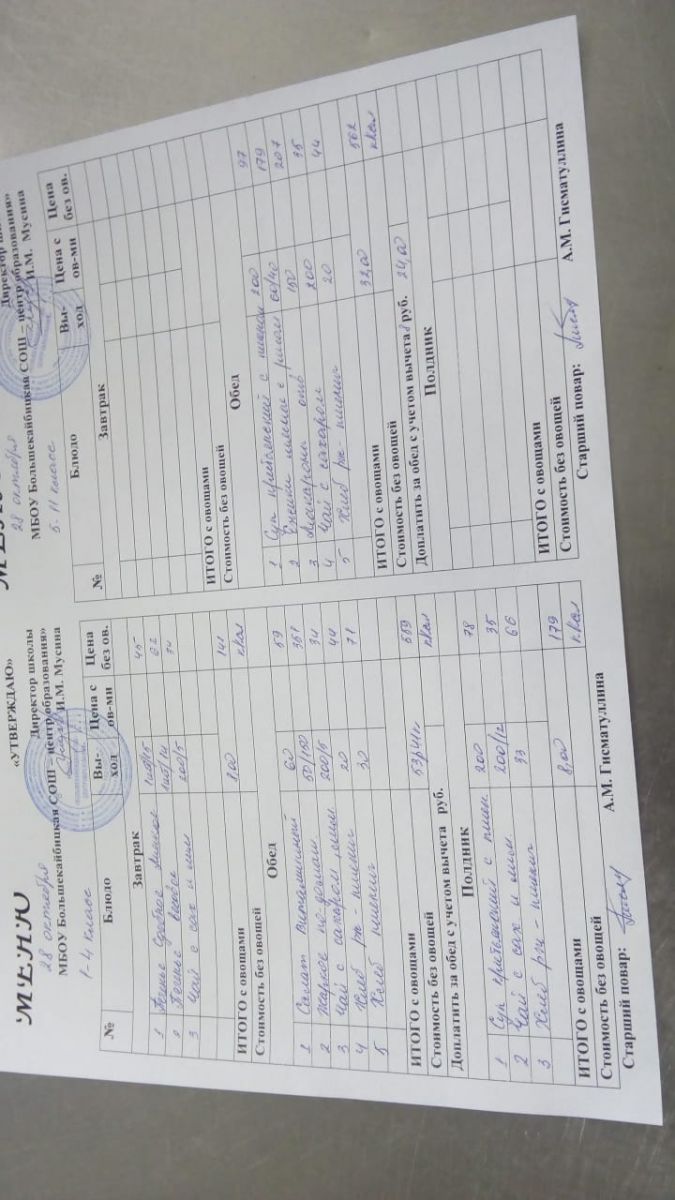 МЕНЮ
«УТВЕРЖДАЮ»
28 октября
Директор школы
МБОУ Большекайбицкая СОШ – центр образования»
И.М. Мусина
1-4 класс
№ Блюдо Вы-ход Цена с ов-ми Цена без ов.
Завтрак
1
2
3 Чай с сах и лим 200/5
141
ИТОГО с овощами 8,00 ккал
Стоимость без овощей
Обед
1 Салат витаминный 60 59
2 Жаркое по-домаш 50/150 351
3 Чай с сахаром, лим 200/5 34
4 Хлеб рж-пшенич 20 44
5 Хлеб пшенич 30 71
559
ИТОГО с овощами 53р41к ккал
Стоимость без овощей
Доплатить за обед с учетом вычета руб.
Полдник
78
1 Суп крестьянский с пшен. 200 35
2 Чай с сах и лим 200/12 66
3 Хлеб рж-пшенич 33
179
ИТОГО с овощами 8,00 ккал
Стоимость без овощей
Старший повар: А.М. Гисматуллина
28 октября
Директор
МБОУ Большекайбицкая СОШ – центр образования»
И.М. Мусина
5-11 класс
№ Блюдо Вы-ход Цена с ов-ми Цена без ов.
Завтрак
ИТОГО с овощами
Стоимость без овощей
Обед
97
1 Суп крестьянский с пшеном 200 179
2 с рисом 207
3 Макароны отв 150 35
4 Чай с сахаром 200 44
5 Хлеб рж-пшенич 20
562
ИТОГО с овощами 32,00 ккал
Стоимость без овощей
Доплатить за обед с учетом вычета 8 руб. 24,00
Полдник
ИТОГО с овощами
Стоимость без овощей
Старший повар: А.М. Гисматуллина